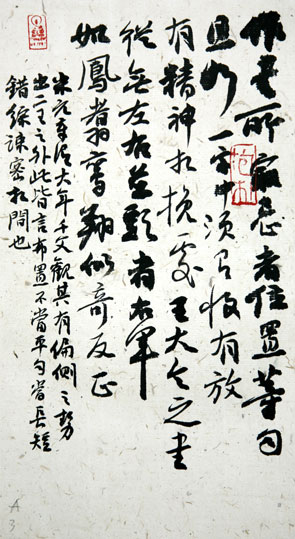 作書所最忌者位置等勻
且如一字中須有收有放
有精神相挽處王大令之書
從無左右並頭者右軍
如鳳翥鸞翔似奇反正
米元章謂大年千文觀其有偏側之勢
出二王之外此皆言布置不當平勻當長短
錯綜疎密相間也
A
3